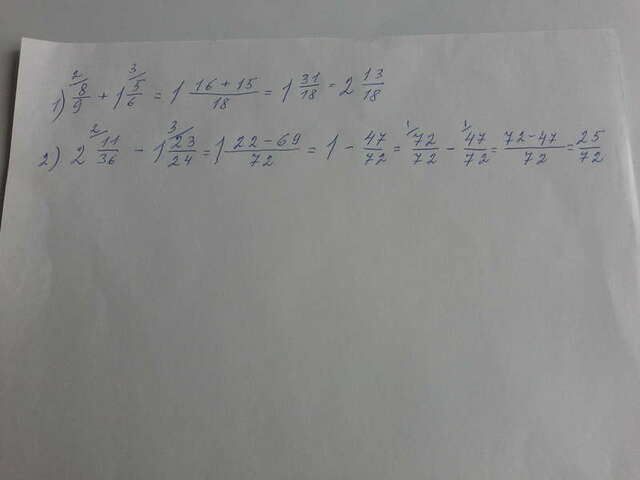 1) 2/ 8/9 + 1 3/ 5/6 = 1 16+15/18 = 1 31/18 = 2 13/18
2) 2 2/ 11/36 - 1 3/ 23/24 = 1 22-69/72 = 1 - 47/72 = 1/ 72/72 - 1/ 47/72 = 72-47/72 = 25/72